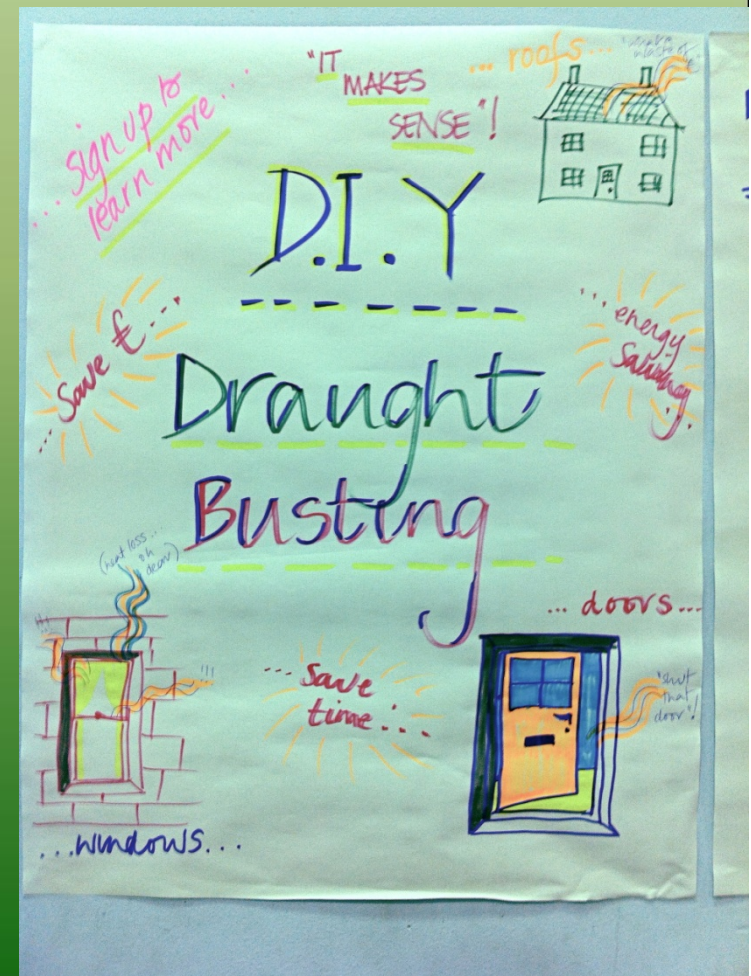 ... sign up to
learn more ...
"IT
MAKES
SENSE"!
... roofs...
D.I.Y
... Save £ ...
... energy
Saving ...
Draught
Busting
(heat loss...
oh
dear)
!!!
!!!
...windows...
... save
time ...
... doors...
"shut
that
door"!